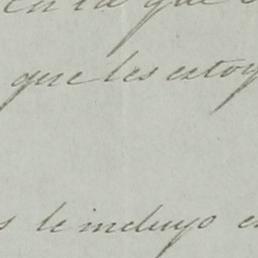 en la que
que les estoy
s le incluyo en